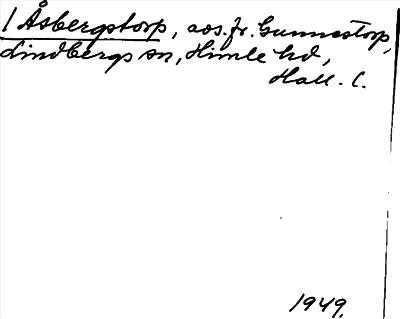 1 Åsbergstorp, aos. fr. Gunnestorp,
Lindbergs sn, Himle hd,
Hall. l.
1949.